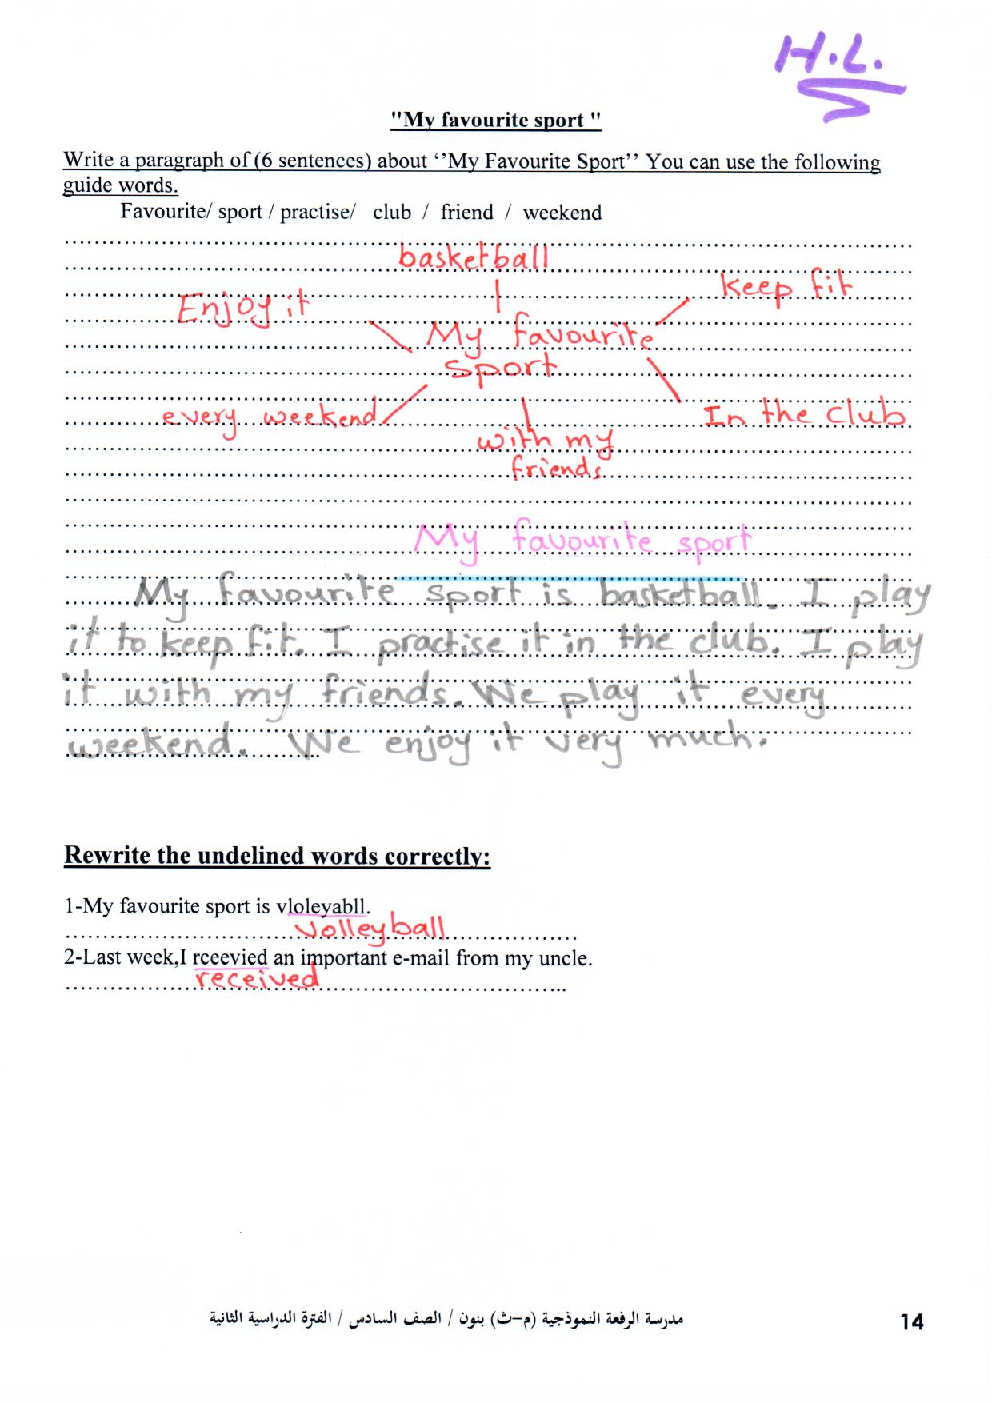 H.L.
"My favourite sport "
Write a paragraph of (6 sentences) about ‘’My Favourite Sport’’ You can use the following
guide words.
Favourite/ sport / practise/ club / friend / weekend
basketball
Enjoy it
keep fit
My favourite
sport
every weekend
In the club
with my
friends
My favourite sport
My favourite sport is basketball. I play
it to keep fit. I practise it in the club. I play
it with my friends. We play it every
weekend. We enjoy it very much.
Rewrite the undelined words correctly:
1-My favourite sport is vloleyabll.
volleyball
2-Last week,I rceevied an important e-mail from my uncle.
received
مدرسة الرفعة النموذجية (م-ث) بنون / الصف السادس / الفترة الدراسية الثانية
14